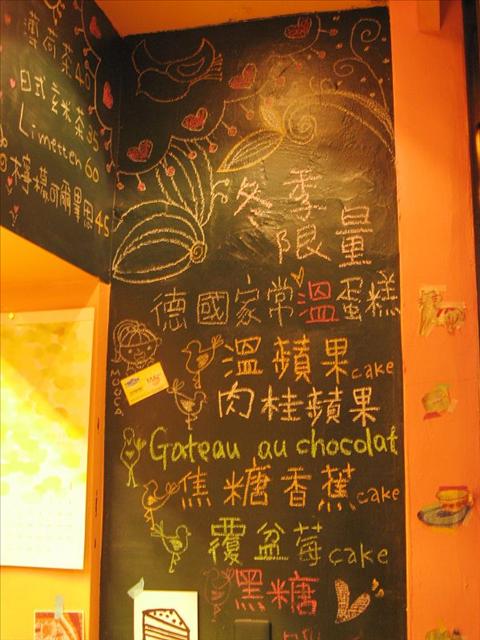 薄荷茶40
日式玄米茶35
Limetten 60
檸檬可爾必思45
冬季
限量
德國家常溫蛋糕
MUOCA
溫蘋果cake
肉桂蘋果
Gateau au chocolat
焦糖香蕉cake
覆盆莓cake
黑糖